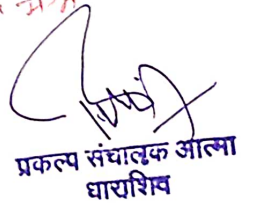 प्रकल्प संचालक आत्मा
धाराशिव